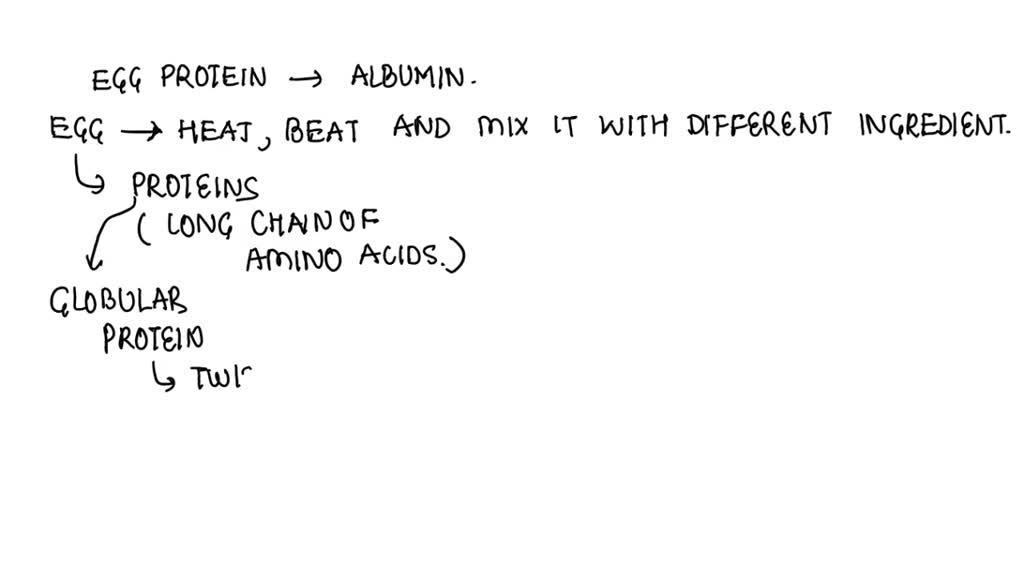 EGG PROTEIN → ALBUMIN.
EGG → HEAT, BEAT AND MIX IT WITH DIFFERENT INGREDIENT.
↳ PROTEINS
( LONG CHAIN OF
AMINO ACIDS.)
GLOBULAR
PROTEIN
↳